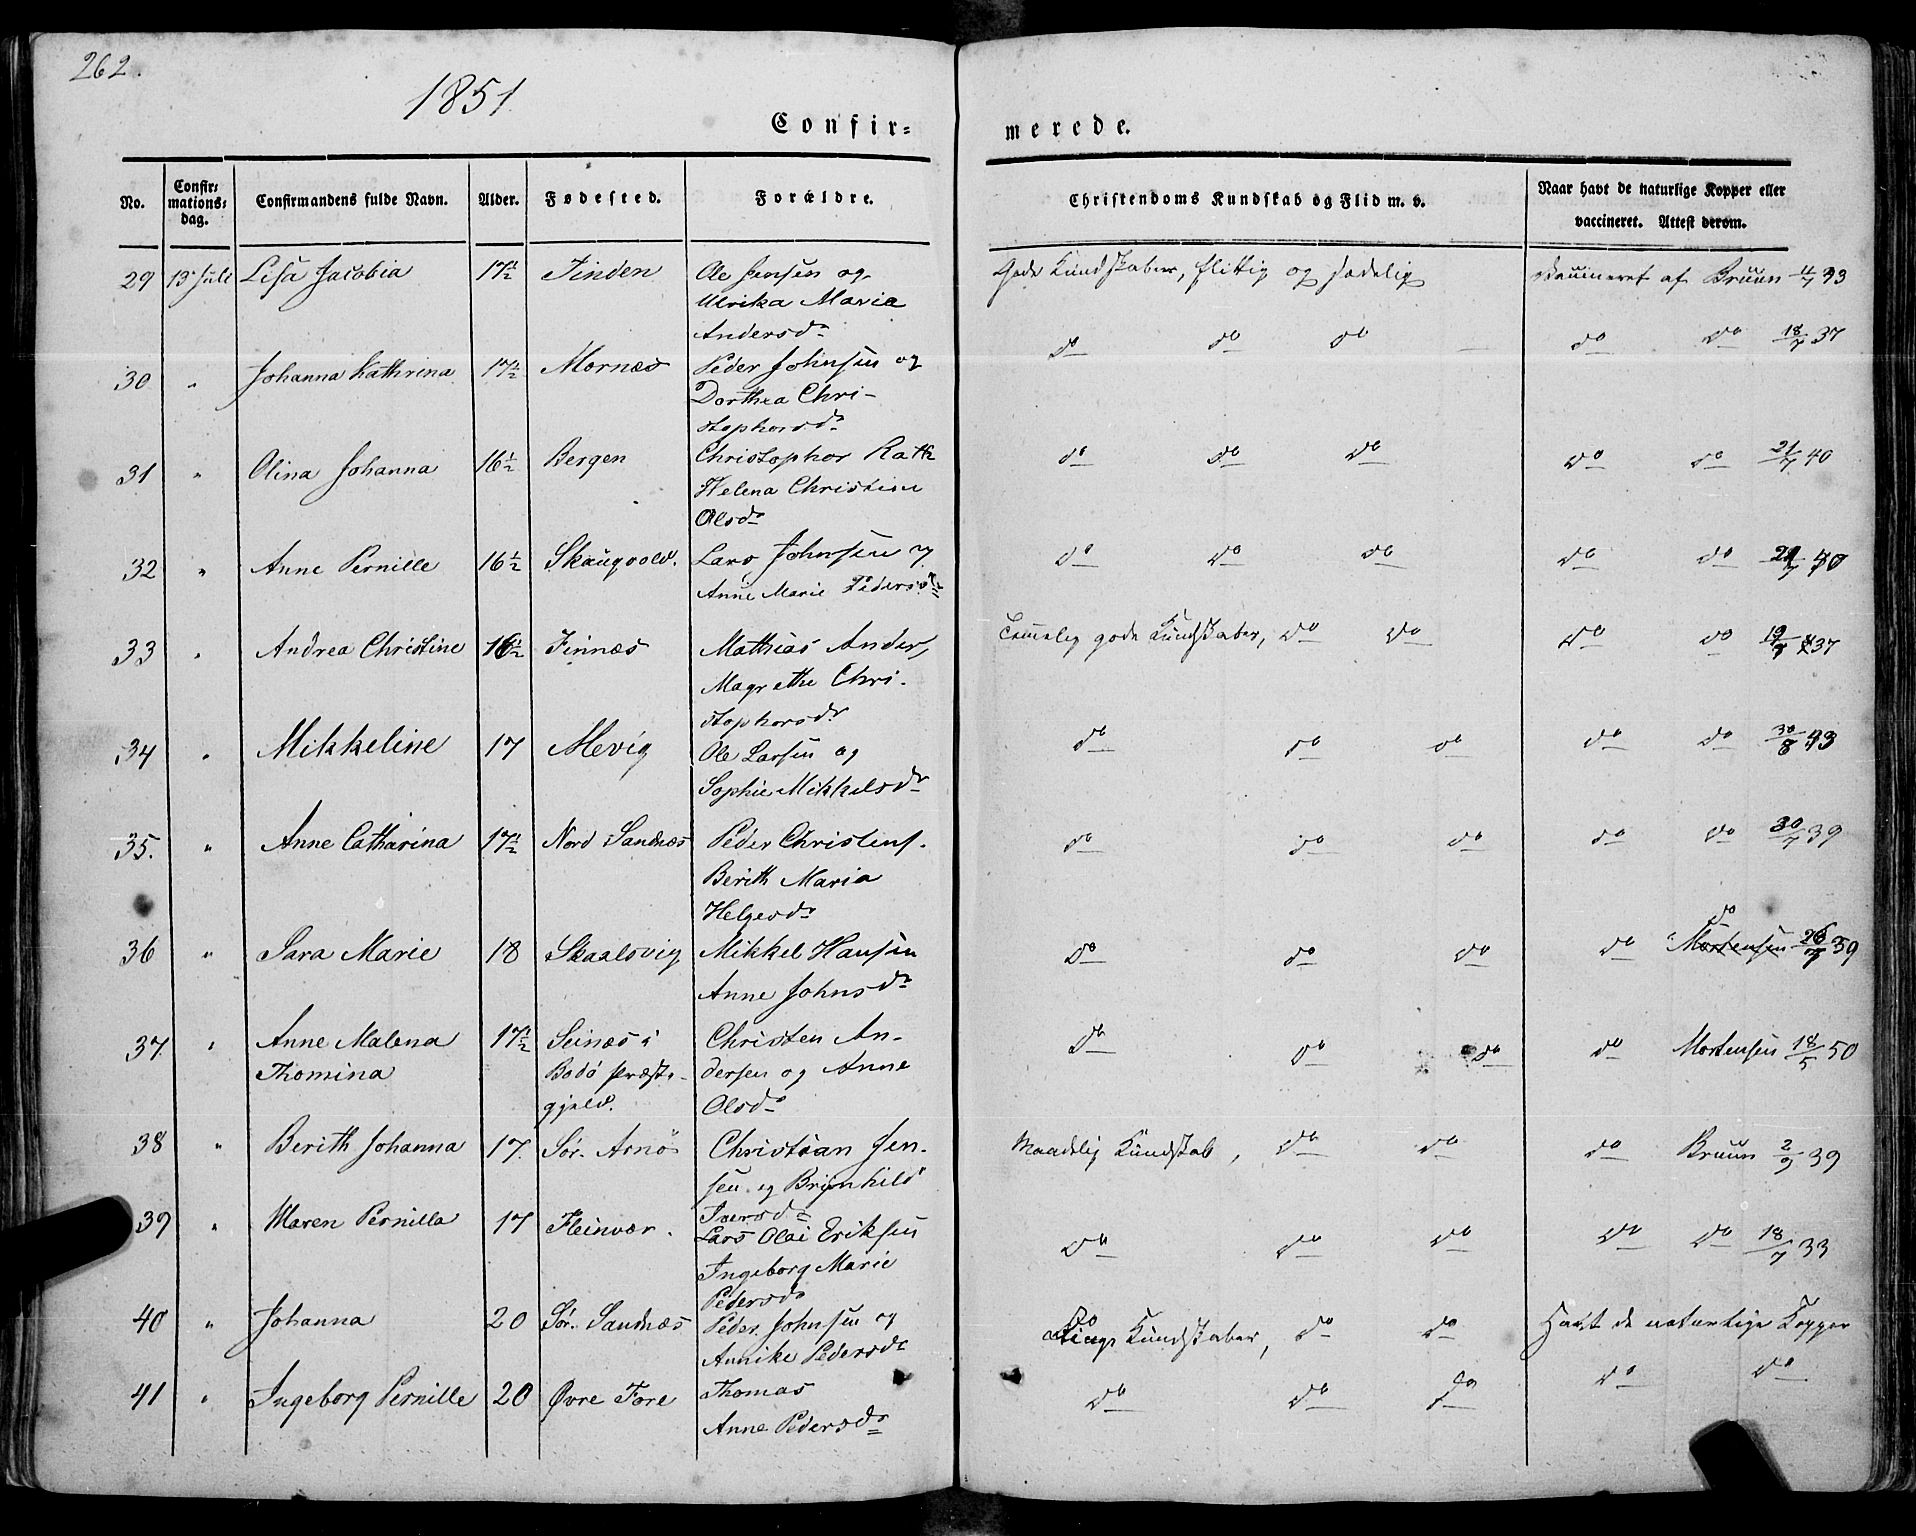 262.
1851.
Confir=
merede.
No.
Confir=
mations=
dag.
Confirmandens fulde Navn.
Alder.
Fødested.
Forældre.
Christendoms Kundskab og Flid m. v.
Naar havt de naturlige Kopper eller
vaccineret. Attest derom.
29 13 Juli Lisa Jacobia 17½ Finden Ole Jensen og
Ulrika Maria
Andersd.
Gode Kundskaber, flittig og sædelig vaccineret af Bruun 11/7 43
30 " Johanna Kathrina 17½ Mornæs Peder Johnsen og
Dorthea Chri-
stophersd.
do do do do do 18/7 37
31 " Olina Johanna 16½ Bergen Christopher Rath
Helena Christine
Olsd.
do do do do do 21/7 40
32 " Anne Pernille 16½ Skaugvold. Lars Johnsen og
Anne Marie Pedersd.
do do do do do 21/7 40
33 " Andrea Christine 16½ Finnæs Mathias Anders,
Magrethe Chri-
stophersd.
Temelig gode Kundskaber, do do do do 19/7 37
34 " Mikkeline 17 Mevig Ole Larsen og
Sophie Mikkelsd.
do do do do do 30/8 43
35. " Anne Catharina 17½ Nord Sandnæs Peder Christens.
Berith Maria
Helgesd.
do do do do do 30/7 39
36 " Sara Marie 18 Skaalsvig Mikkel Hansen
Anne Johnsd.
do do do do do
Mortensen 26/7 39
37. " Anne Malena 17½ Seinæs i Christen An-
Thomina Bodö Præste- dersen og Anne
gjeld. Olsd.
do do do do Mortensen 18/5 50
38 " Berith Johanna 17. Sör. Arnö Christian Jen-
sen og Brynhild
Iversd.
Maadelig Kundskab, do do do Bruun 2/9 39
39 " Maren Pernilla 17 Fleinvær. Lars Olai Eriksen
Ingeborg Marie
Pedersd.
do do do do do 18/7 33
40 " Johanna 20 Sör. Sandnæs Peder Johnsen og
Annike Pedersd.
do
Kundskaber, do do Havt de naturlige Kopper
41 " Ingeborg Pernille 20 Øvre Fore Thomas
Anne Pedersd.
do do do do do